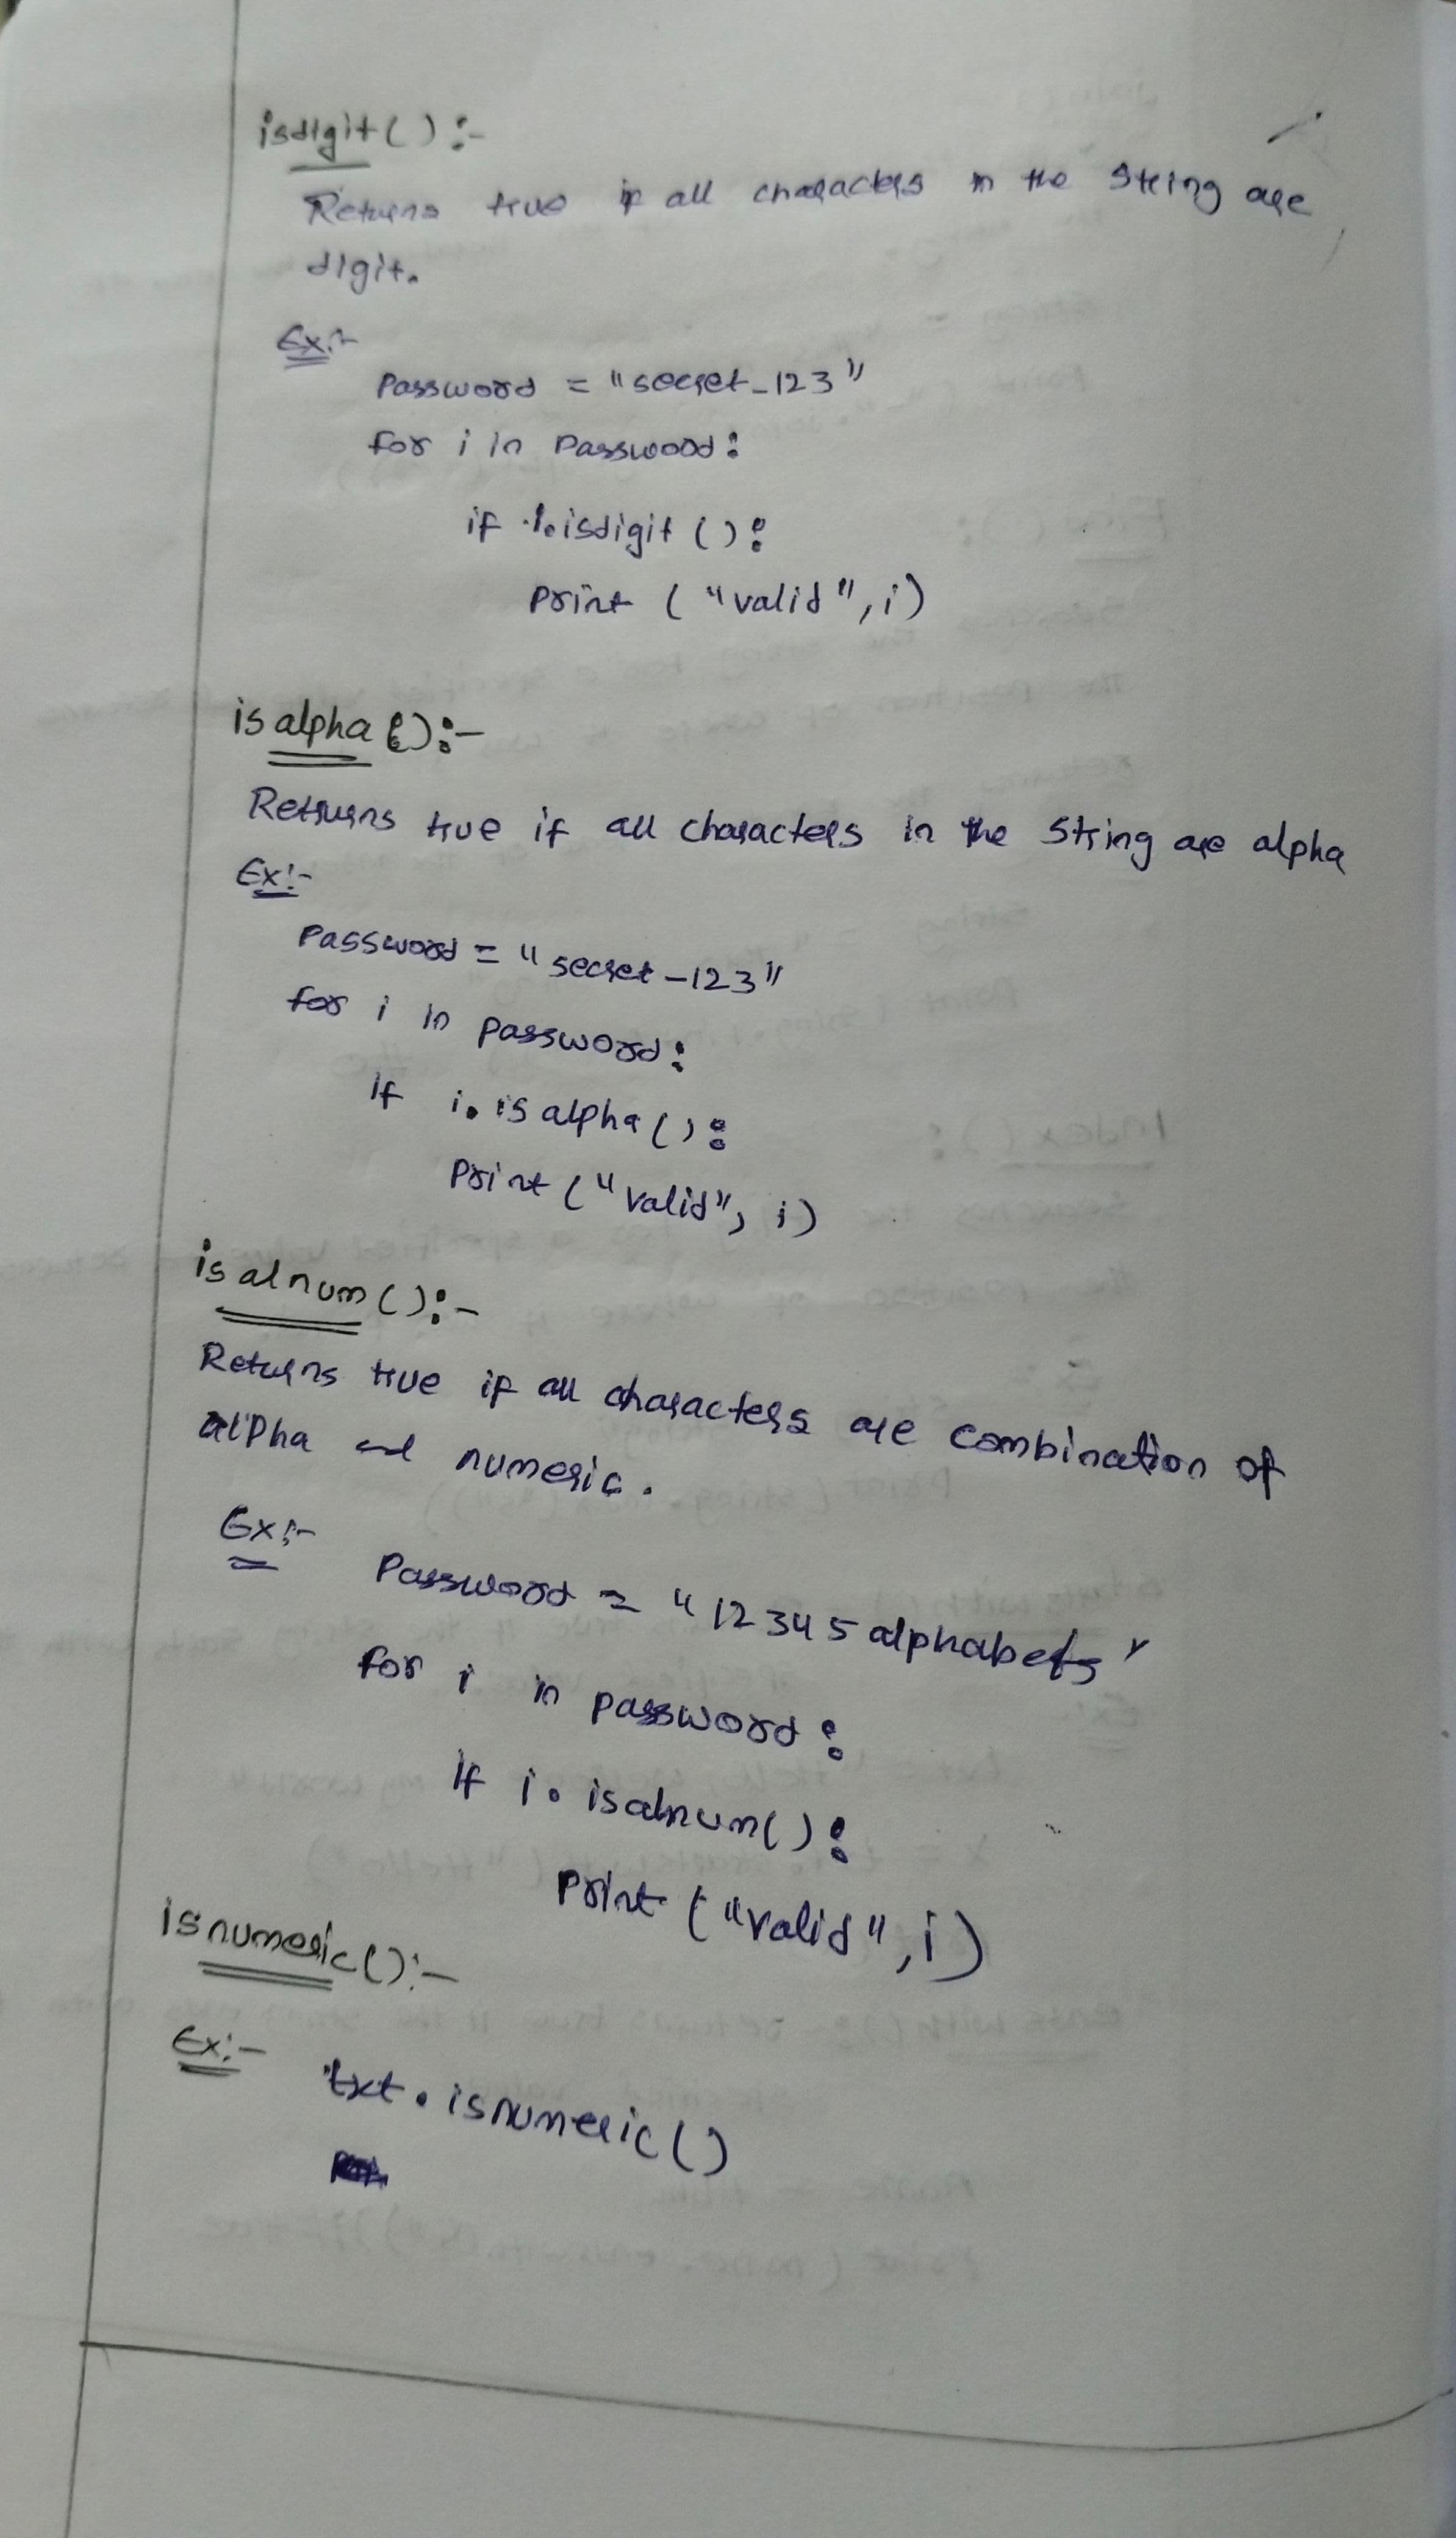 isdigit():-
Returns true if all characters in the string are
digit.
Ex:-
Password = "secret_123"
for i in Password:
if i.isdigit():
Print ("valid", i)
isalpha():-
Returns true if all characters in the String are alpha
Ex:-
Password = "secret-123"
for i in password:
If i.isalpha():
Print ("valid", i)
isalnum():-
Returns true if all characters are combination of
alpha and numeric.
Ex:-
Password = "12345alphabets"
for i in password:
If i.isalnum():
Print ("valid", i)
isnumeric():-
Ex:-
txt.isnumeric()